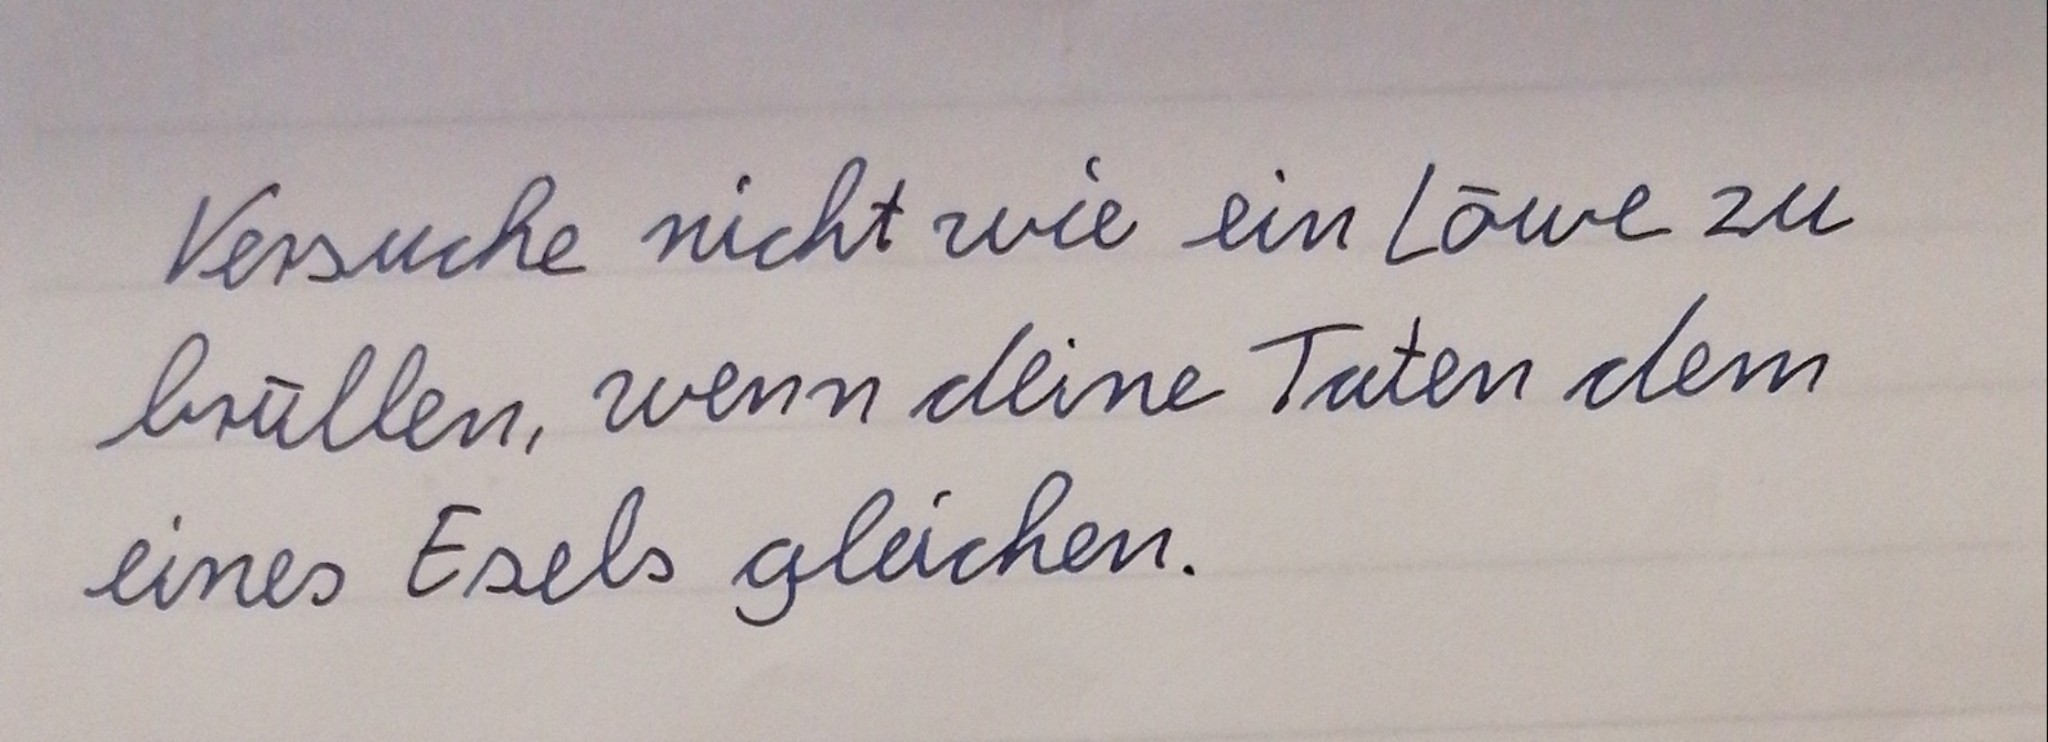 Versuche nicht wie ein Löwe zu
brüllen, wenn deine Taten dem
eines Esels gleichen.